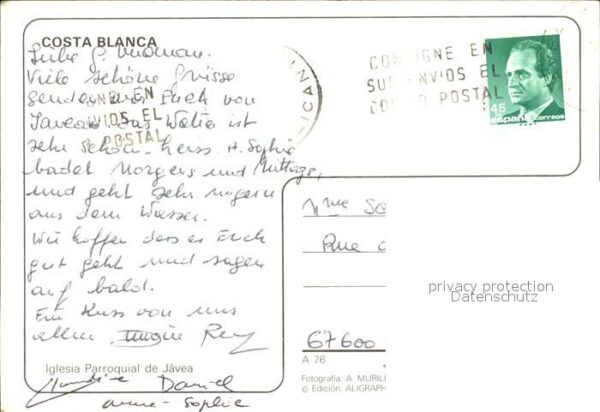 COSTA BLANCA
Liebe G. mdman.
Viele schöne Grüsse
senden wir Euch von
Javea. Das Wetter ist
sehr schön - heiss. A. Sophie
badet Morgens und Mittags,
und geht sehr ungern
aus dem Wasser.
Wir hoffen dass es Euch
gut geht und sagen
auf bald.
Ein Kuss von uns
allen Rey
Iglesia Parroquial de Jávea
Daniel
Anne-Sophie
CONSIGNE EN
SUS ENVIOS EL
CODIGO POSTAL
NE EN
VIOS EL
POSTAL
ICAN
45
españa correos
Mme Sc
Rue
67600
A 76
Fotografía: A. MURILL
© Edición: ALIGRAPH
privacy protection
Datenschutz